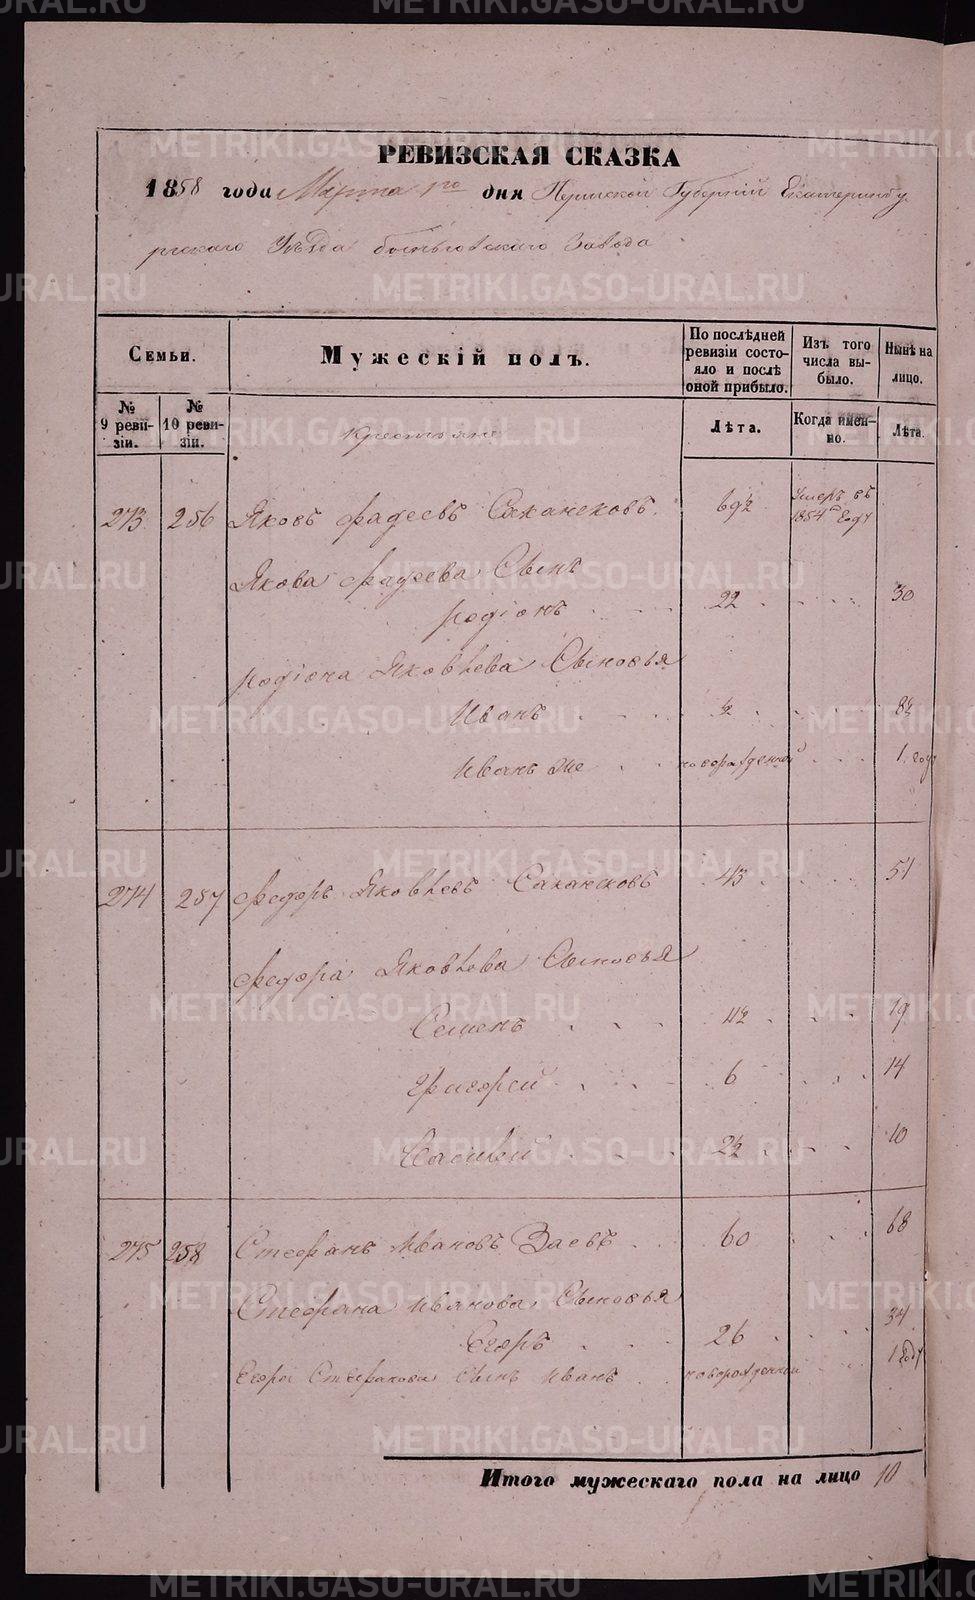 РЕВИЗСКАЯ СКАЗКА
1858 года Марта 1го дня Пермской Губерніи Екатеринбу
ргскаго Уѣзда Завода
Семьи.
Мужескій полъ.
По послѣдней ревизіи состояло и послѣ оной прибыло.
Изъ того числа выбыло.
Нынѣ на лицо.
№ 9 ревизіи.
№ 10 ревизіи.
Лѣта.
Когда именно.
Лѣта.
крестьяне
273 256 Яковъ Фадеевъ 69½ Умеръ въ 1854мъ Году
Якова Фадеева Сынъ
Родіонъ 22 30
Родіона Яковлева Сыновья
Иванъ ½ 8½
Иванъ же новорожденной 1 году
274 257 Федоръ Яковлевъ 43 51
Федора Яковлева Сыновья
Семенъ 11½ 19
Григорей 6 14
Василей 2½ 10
275 258 Стефанъ Ивановъ Заевъ 60 68
Стефана Иванова Сыновья
Егоръ 26 34
Егора Стефанова Сынъ Иванъ новорожденной 1 году
Итого мужескаго пола на лицо 10
METRIKI.GASO-URAL.RU